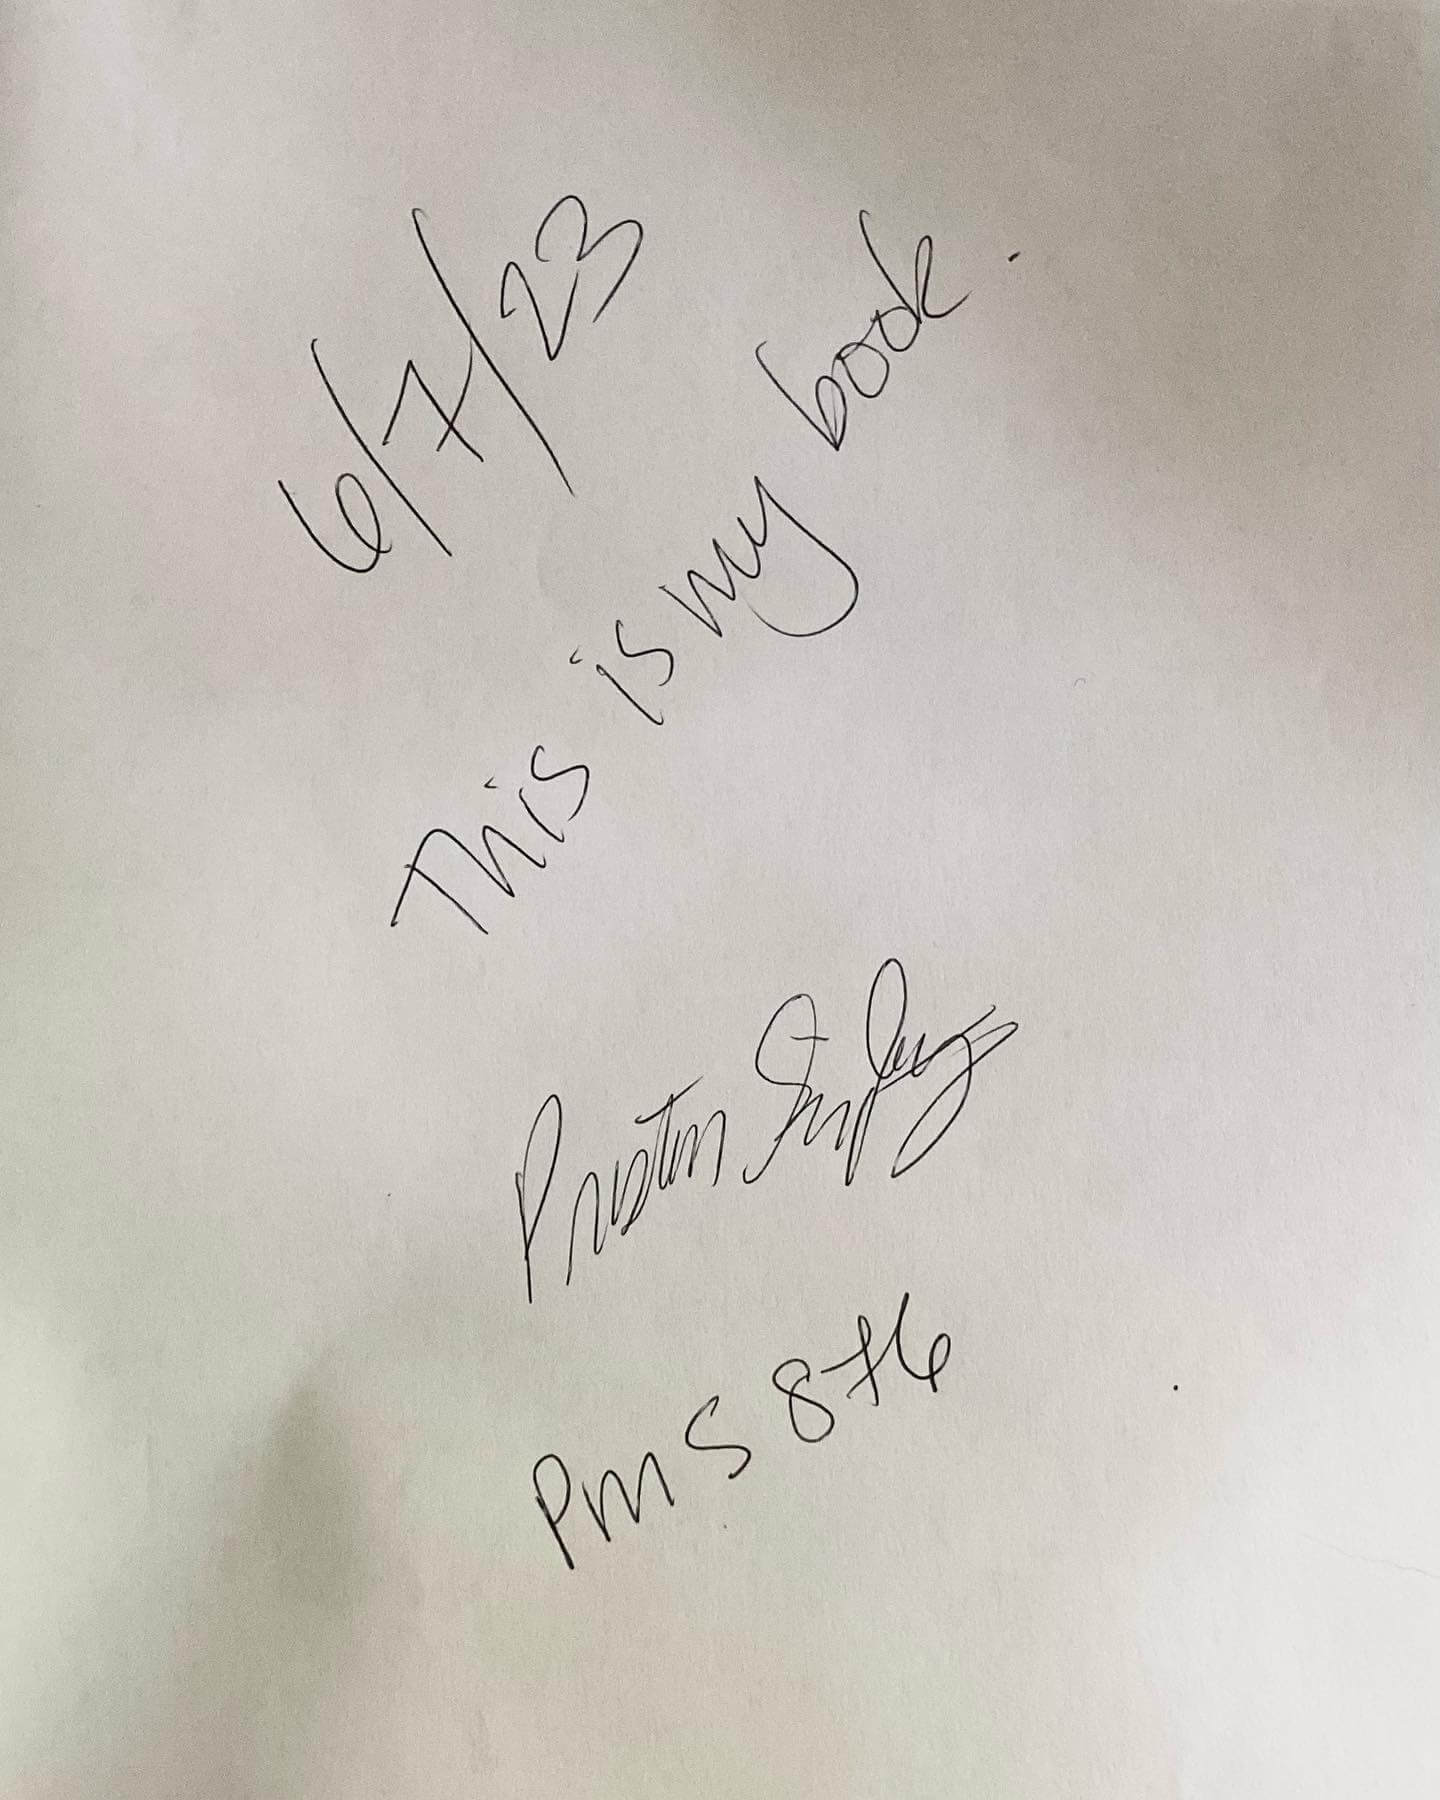 6/7/23
This is my book.
Preston
PMS 876